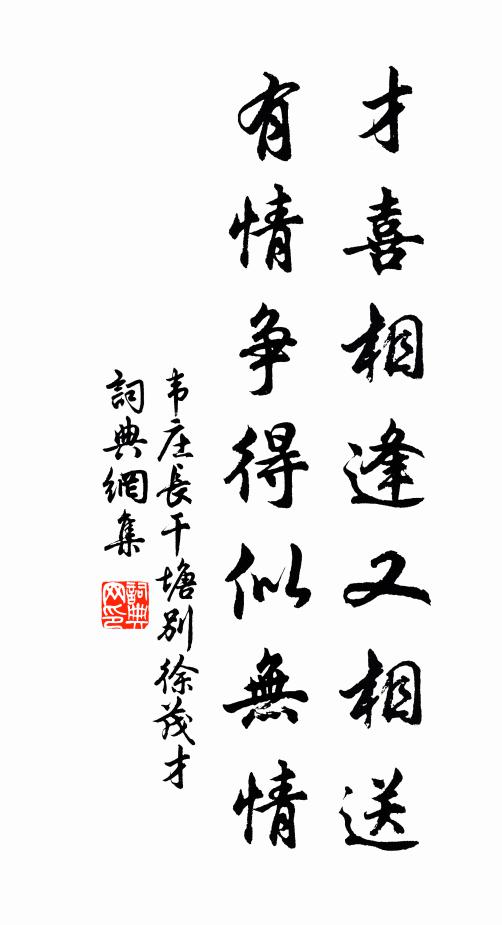 才喜相逢又相送
有情争得似無情
韦庄長干塘別徐茂才
詞典網集
詞典
网印